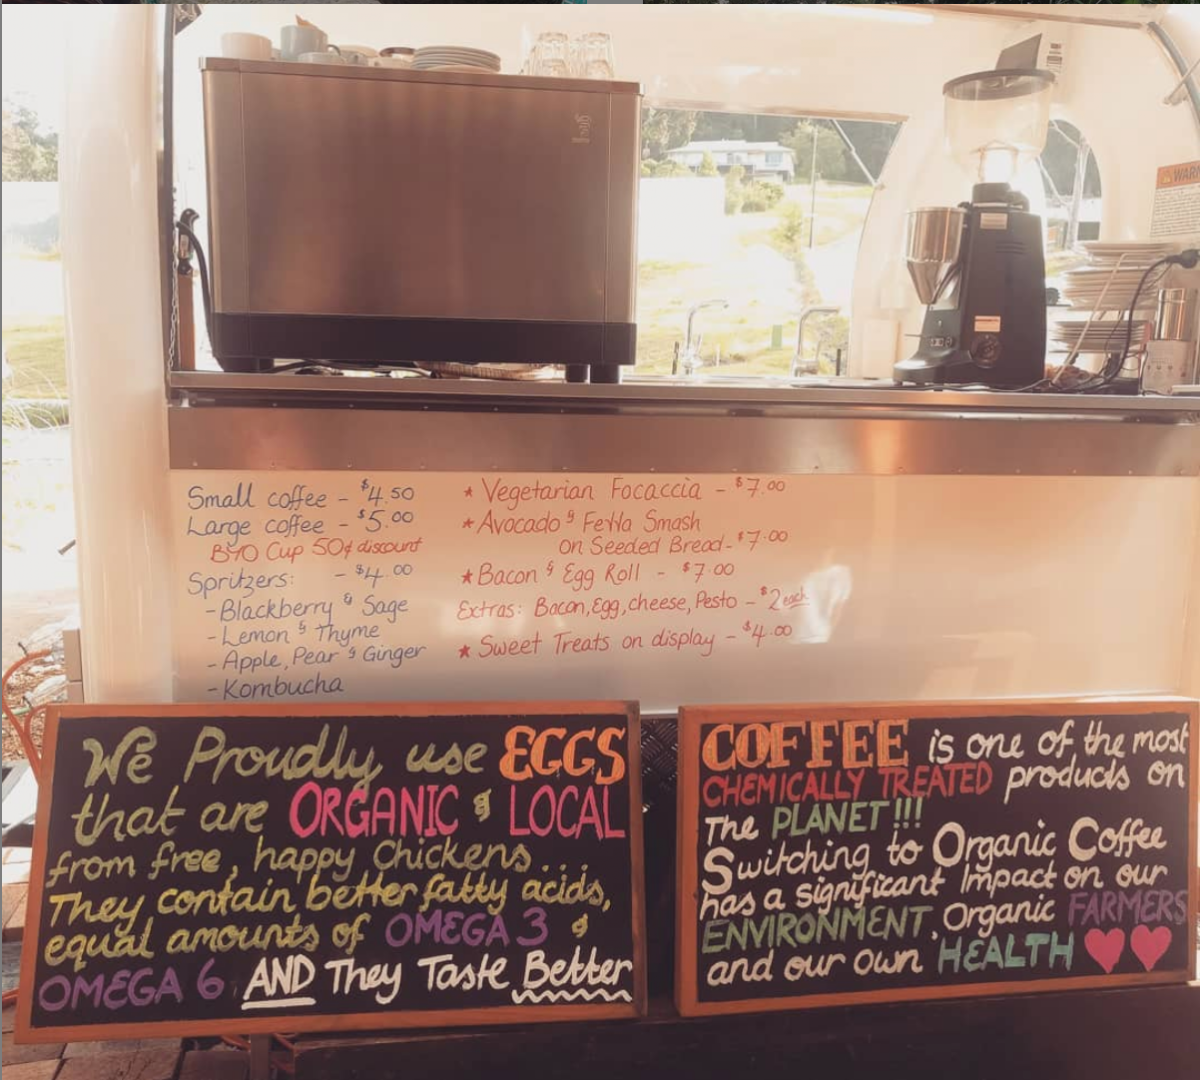 WARN
Small coffee - $4.50
Large coffee - $5.00
BYO Cup 50¢ discount
Spritzers: - $4.00
- Blackberry & Sage
- Lemon & Thyme
- Apple, Pear & Ginger
- Kombucha
★ Vegetarian Focaccia - $7.00
★ Avocado & Fetta Smash
on Seeded Bread - $7.00
★ Bacon & Egg Roll - $7.00
Extras: Bacon, Egg, cheese, Pesto - $2 each
★ Sweet Treats on display - $4.00
We Proudly use EGGS
that are ORGANIC & LOCAL
from free, happy Chickens...
They contain better fatty acids,
equal amounts of OMEGA 3 &
OMEGA 6 AND They Taste Better
COFFEE is one of the most
CHEMICALLY TREATED products on
The PLANET!!!
Switching to Organic Coffee
has a significant Impact on our
ENVIRONMENT, Organic FARMERS
and our own HEALTH